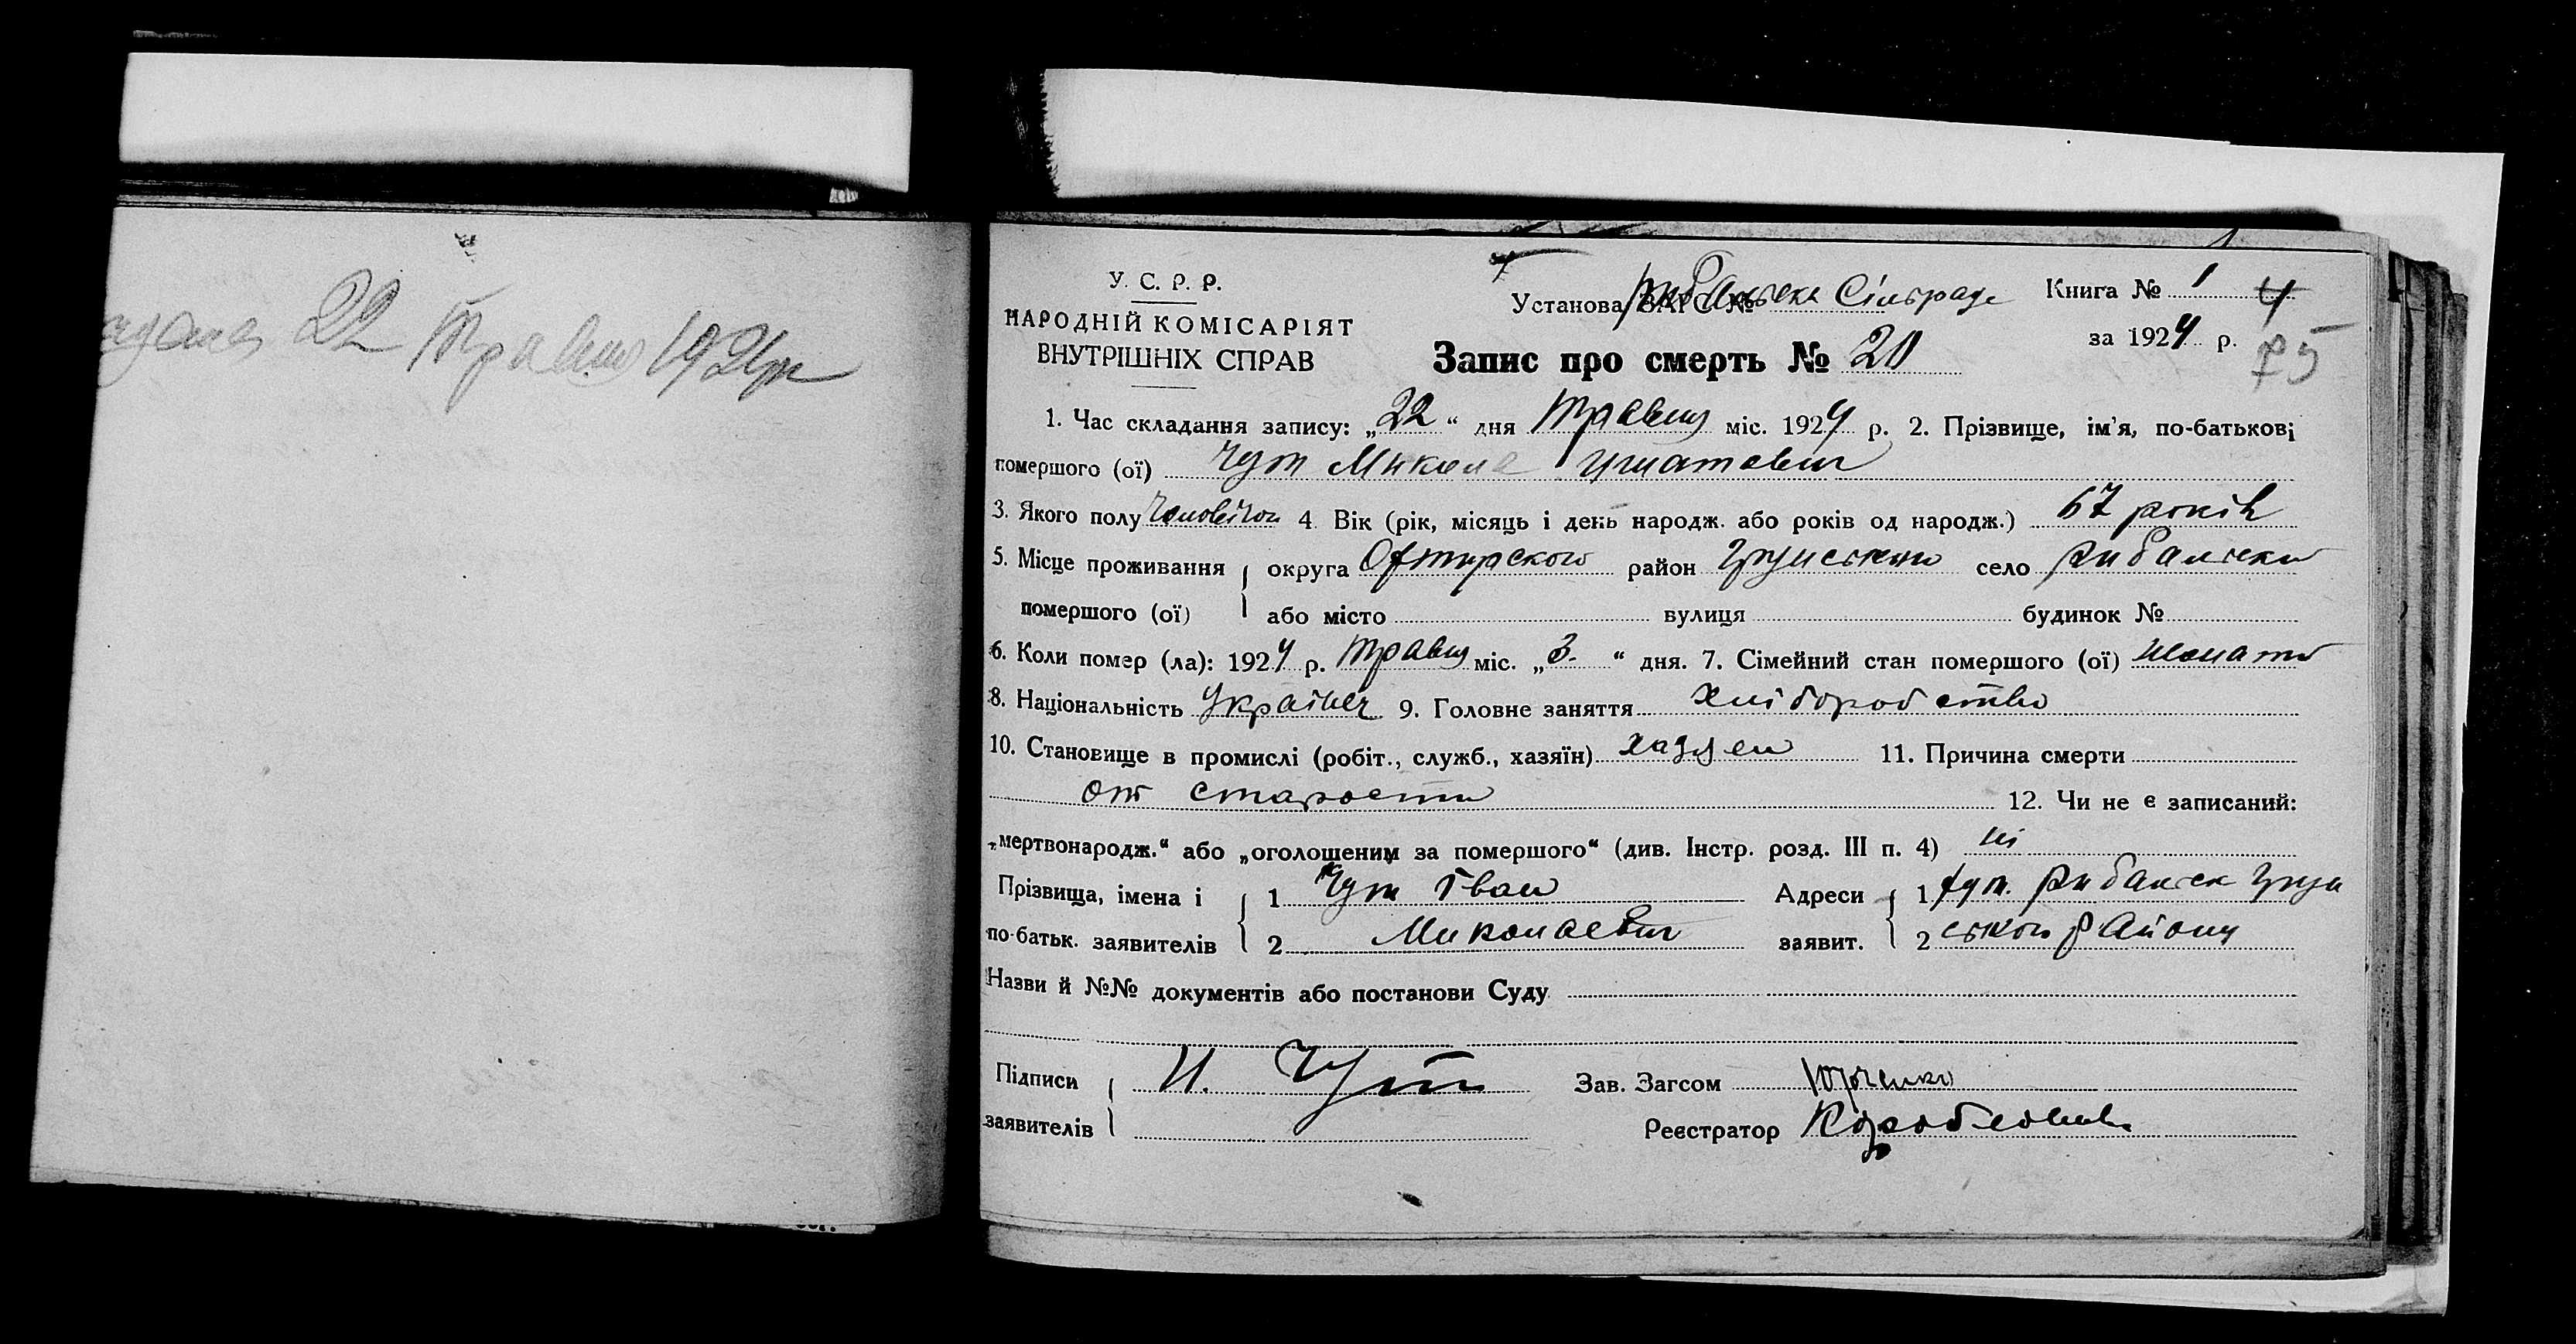 22 Травня 1924 р
У. С. Р. Р.
НАРОДНІЙ КОМІСАРІЯТ
ВНУТРІШНІХ СПРАВ
Установа ЗАГС № Рибальська Сільрада
Книга № 1
4
за 1924 р.
75
Запис про смерть № 20
1. Час складання запису: „22“ дня Травня міс. 1924 р. 2. Прізвище, ім'я, по-батькові
помершого (ої) Чут Микола Игнатович
3. Якого полу 4 Вік (рік, місяць і день народж. або років од народж.) 67 років
5. Місце проживання округа район село Рибальски
помершого (ої) або місто вулиця будинок №
6. Коли помер (ла): 1924 р. Травня міс. „3.“ дня. 7. Сімейний стан помершого (ої) жонати
8. Національність Українец 9. Головне заняття хліборобство
10. Становище в промислі (робіт., служб., хазяїн) хазяен 11. Причина смерти
от старости 12. Чи не є записаний:
„мертвонародж.“ або „оголошеним за помершого“ (див. Інстр. розд. III п. 4) ні
Прізвища, імена і 1 Чут Іван Адреси 1 хут. Рибальск Грун
по-батьк. заявителів 2 Миколаевич заявит. 2 ського району
Назви й №№ документів або постанови Суду
Підписи И. Чут Зав. Загсом Юрченко
заявителів Реєстратор